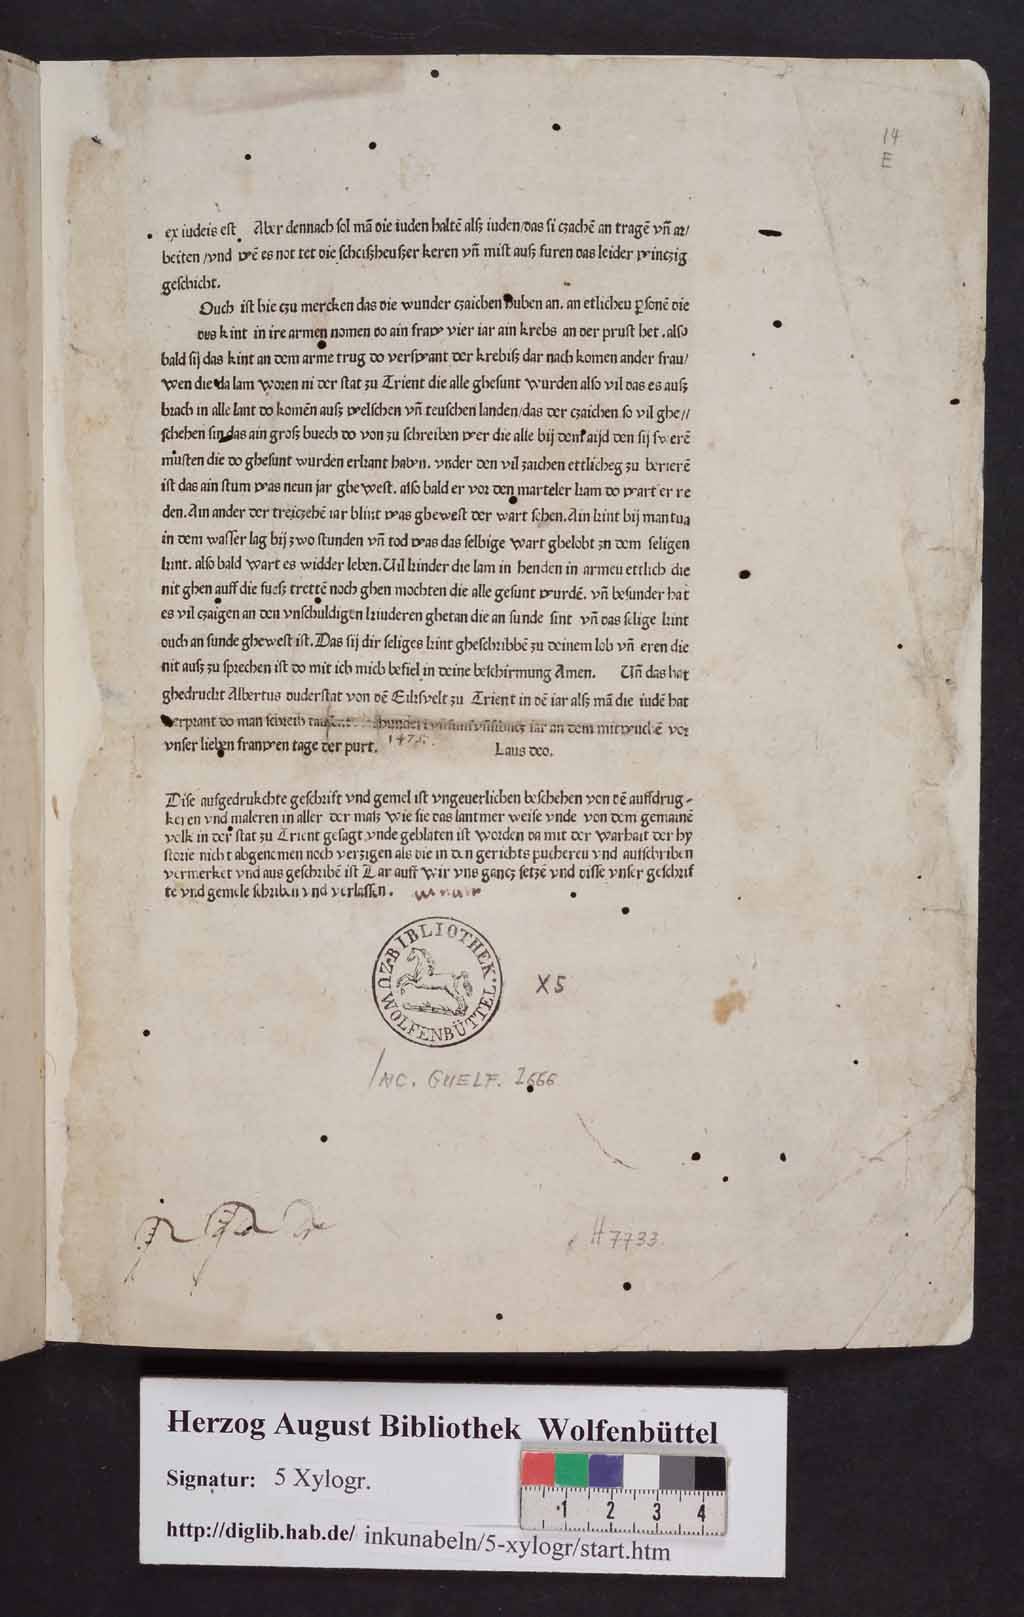 14
E
ex iudeis est. Aber dennach sol mā die iuden haltē alsz iuden/das si czachē an tragē vn̄ ar/
beiten /vnd wē es not tet die scheiszheuszer keren vn̄ mist ausz furen das leider winczig
geschicht.
Ouch ist hie czu mercken das die wunder czaichen huben an. an etlicheu ꝑsonē die
des kint in ire armen nomen do ain fraw vier iar ain krebs an der prust het .also
bald sij das kint an dem arme trug do verswant der krebisz dar nach komen ander frau/
wen die da lam woren ni der stat zu Trient die alle ghesunt wurden also vil das es ausz
brach in alle lant do komēn ausz welschen vn̄ teuschen landen/das der czaichen so vil ghe//
schehen sin das ain grosz buech do von zu schreiben wer die alle bij dem aijd den sij swerē
muͤsten die do ghesunt wurden erkant habn. vnder den vil zaichen ettlicheg zu berierē
ist das ain stum was neun jar ghewest. also bald er vor den marteler kam do wart er re
den. Ain ander der treiczehē iar blint was ghewest der wart sehen. Ain kint bij mantua
in dem wasser lag bij zwo stunden vn̄ tod was das selbige wart ghelobt zn dem seligen
kint. also bald wart es widder leben. Uil kinder die lam in henden in armeu ettlich die
nit ghen auff die fuesz trettē noch ghen mochten die alle gesunt wurdē. vn̄ besunder hat
es vil czaigen an den vnschuldigen kiuderen ghetan die an sunde sint vn̄ das selige kint
ouch an sunde ghewest ist. Das sij dir seliges kint gheschribbē zu deinem lob vn̄ eren die
nit ausz zu sprechen ist do mit ich mich befiel in deine beschirmung Amen. Un̄ das hat
ghedruckt Albertus duderstat von dē Eiksvelt zu Trient in dē iar alsz mā die iudē hat
verprant do man schreib tausent hundert vn̄ funfvn̄sibncz iar an dem mitwuchē vor
vnser lieben franwen tage der purt. 1475. Laus deo.
Dise aufgedrukchte geschrift vnd gemel ist vngeuerlichen beschehen von dē auffdrug-
keren vnd maleren in aller der masz wie sie das lantmer weise vnde von dem gemainē
volk in der stat zu Trient gesagt vnde geblaten ist worden da mit der warhait der hy
storie nicht abgenomen noch verzigen als die in den gerichts puchereu vnd aufschriben
vermerket vnd aus geschribē ist Dar auff wir vns gancz setzē vnd disse vnser geschrif
te vnd gemele schriben vnd verlassen.
BIBLIOTHEK ZU WOLFENBÜTTEL
X5
INC. GUELF. 2666
H 7733
Herzog August Bibliothek Wolfenbüttel
Signatur: 5 Xylogr.
1 2 3 4
http://diglib.hab.de/ inkunabeln/5-xylogr/start.htm